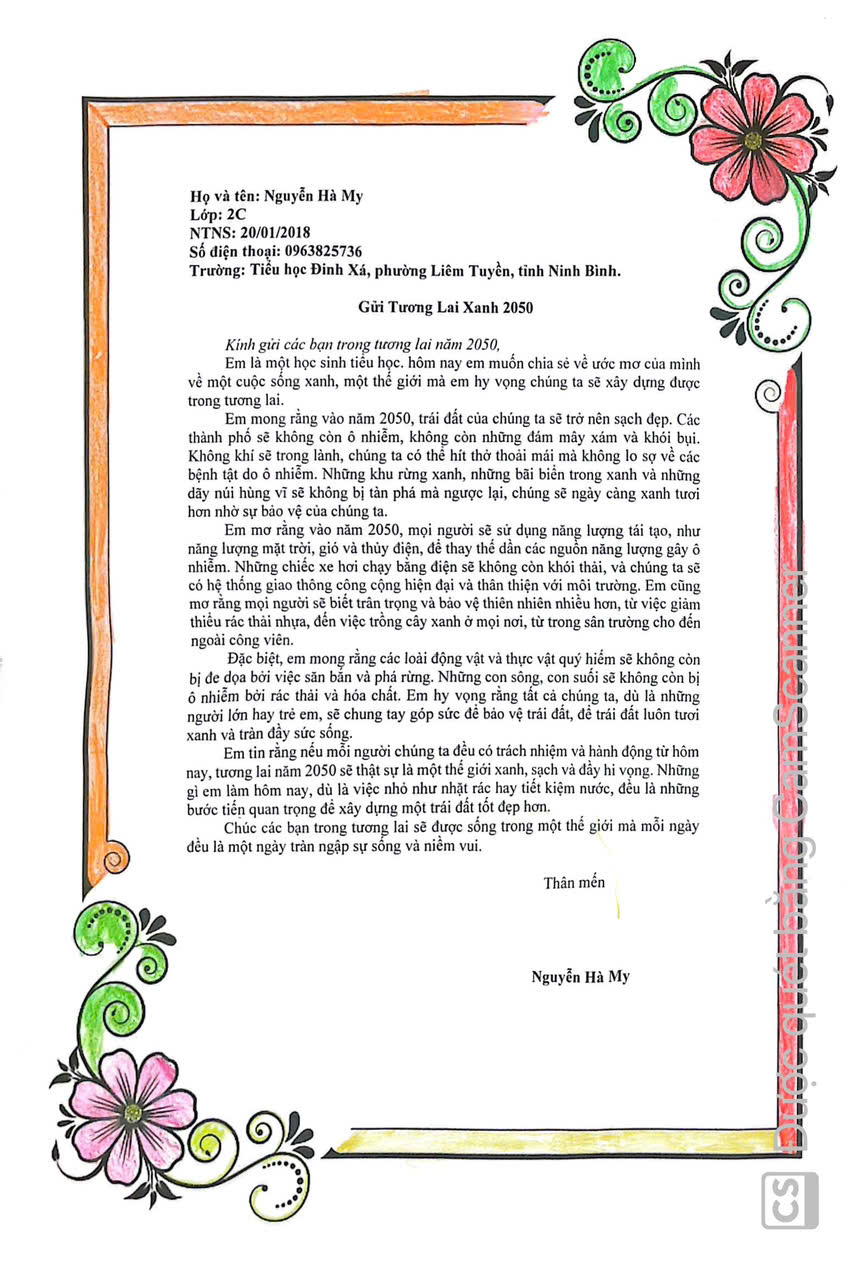 Họ và tên: Nguyễn Hà My
Lớp: 2C
NTNS: 20/01/2018
Số điện thoại: 0963825736
Trường: Tiểu học Đinh Xá, phường Liêm Tuyền, tỉnh Ninh Bình.
Gửi Tương Lai Xanh 2050
Kính gửi các bạn trong tương lai năm 2050,
Em là một học sinh tiểu học. hôm nay em muốn chia sẻ về ước mơ của mình
về một cuộc sống xanh, một thế giới mà em hy vọng chúng ta sẽ xây dựng được
trong tương lai.
Em mong rằng vào năm 2050, trái đất của chúng ta sẽ trở nên sạch đẹp. Các
thành phố sẽ không còn ô nhiễm, không còn những đám mây xám và khói bụi.
Không khí sẽ trong lành, chúng ta có thể hít thở thoải mái mà không lo sợ về các
bệnh tật do ô nhiễm. Những khu rừng xanh, những bãi biển trong xanh và những
dãy núi hùng vĩ sẽ không bị tàn phá mà ngược lại, chúng sẽ ngày càng xanh tươi
hơn nhờ sự bảo vệ của chúng ta.
Em mơ rằng vào năm 2050, mọi người sẽ sử dụng năng lượng tái tạo, như
năng lượng mặt trời, gió và thủy điện, để thay thế dần các nguồn năng lượng gây ô
nhiễm. Những chiếc xe hơi chạy bằng điện sẽ không còn khói thải, và chúng ta sẽ
có hệ thống giao thông công cộng hiện đại và thân thiện với môi trường. Em cũng
mơ rằng mọi người sẽ biết trân trọng và bảo vệ thiên nhiên nhiều hơn, từ việc giảm
thiểu rác thải nhựa, đến việc trồng cây xanh ở mọi nơi, từ trong sân trường cho đến
ngoài công viên.
Đặc biệt, em mong rằng các loài động vật và thực vật quý hiếm sẽ không còn
bị đe dọa bởi việc săn bắn và phá rừng. Những con sông, con suối sẽ không còn bị
ô nhiễm bởi rác thải và hóa chất. Em hy vọng rằng tất cả chúng ta, dù là những
người lớn hay trẻ em, sẽ chung tay góp sức để bảo vệ trái đất, để trái đất luôn tươi
xanh và tràn đầy sức sống.
Em tin rằng nếu mỗi người chúng ta đều có trách nhiệm và hành động từ hôm
nay, tương lai năm 2050 sẽ thật sự là một thế giới xanh, sạch và đầy hi vọng. Những
gì em làm hôm nay, dù là việc nhỏ như nhặt rác hay tiết kiệm nước, đều là những
bước tiến quan trọng để xây dựng một trái đất tốt đẹp hơn.
Chúc các bạn trong tương lai sẽ được sống trong một thế giới mà mỗi ngày
đều là một ngày tràn ngập sự sống và niềm vui.
Thân mến
Nguyễn Hà My
CS Được quét bằng CamScanner